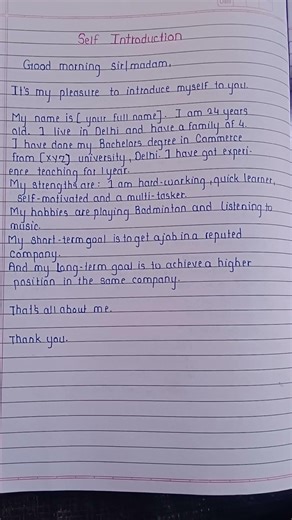 Self Introduction
Good morning sir/madam.
It's my pleasure to introduce myself to you.
My name is [your full name]. I am 24 years
old. I live in Delhi and have a family of 4.
I have done my Bachelors degree in Commerce
from [xyz] university, Delhi. I have got experi-
ence teaching for 1 year.
My strengths are: I am hard-working, quick learner,
self-motivated and a multi-tasker.
My hobbies are playing Badminton and listening to
music.
My short-term goal is to get a job in a reputed
company.
And my long-term goal is to achieve a higher
position in the same company.
That's all about me.
Thank you.